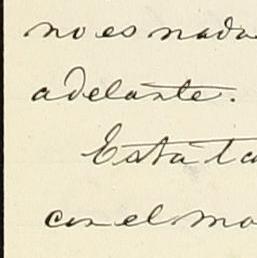 no es nada
adelante.
Esta ta
con el mo